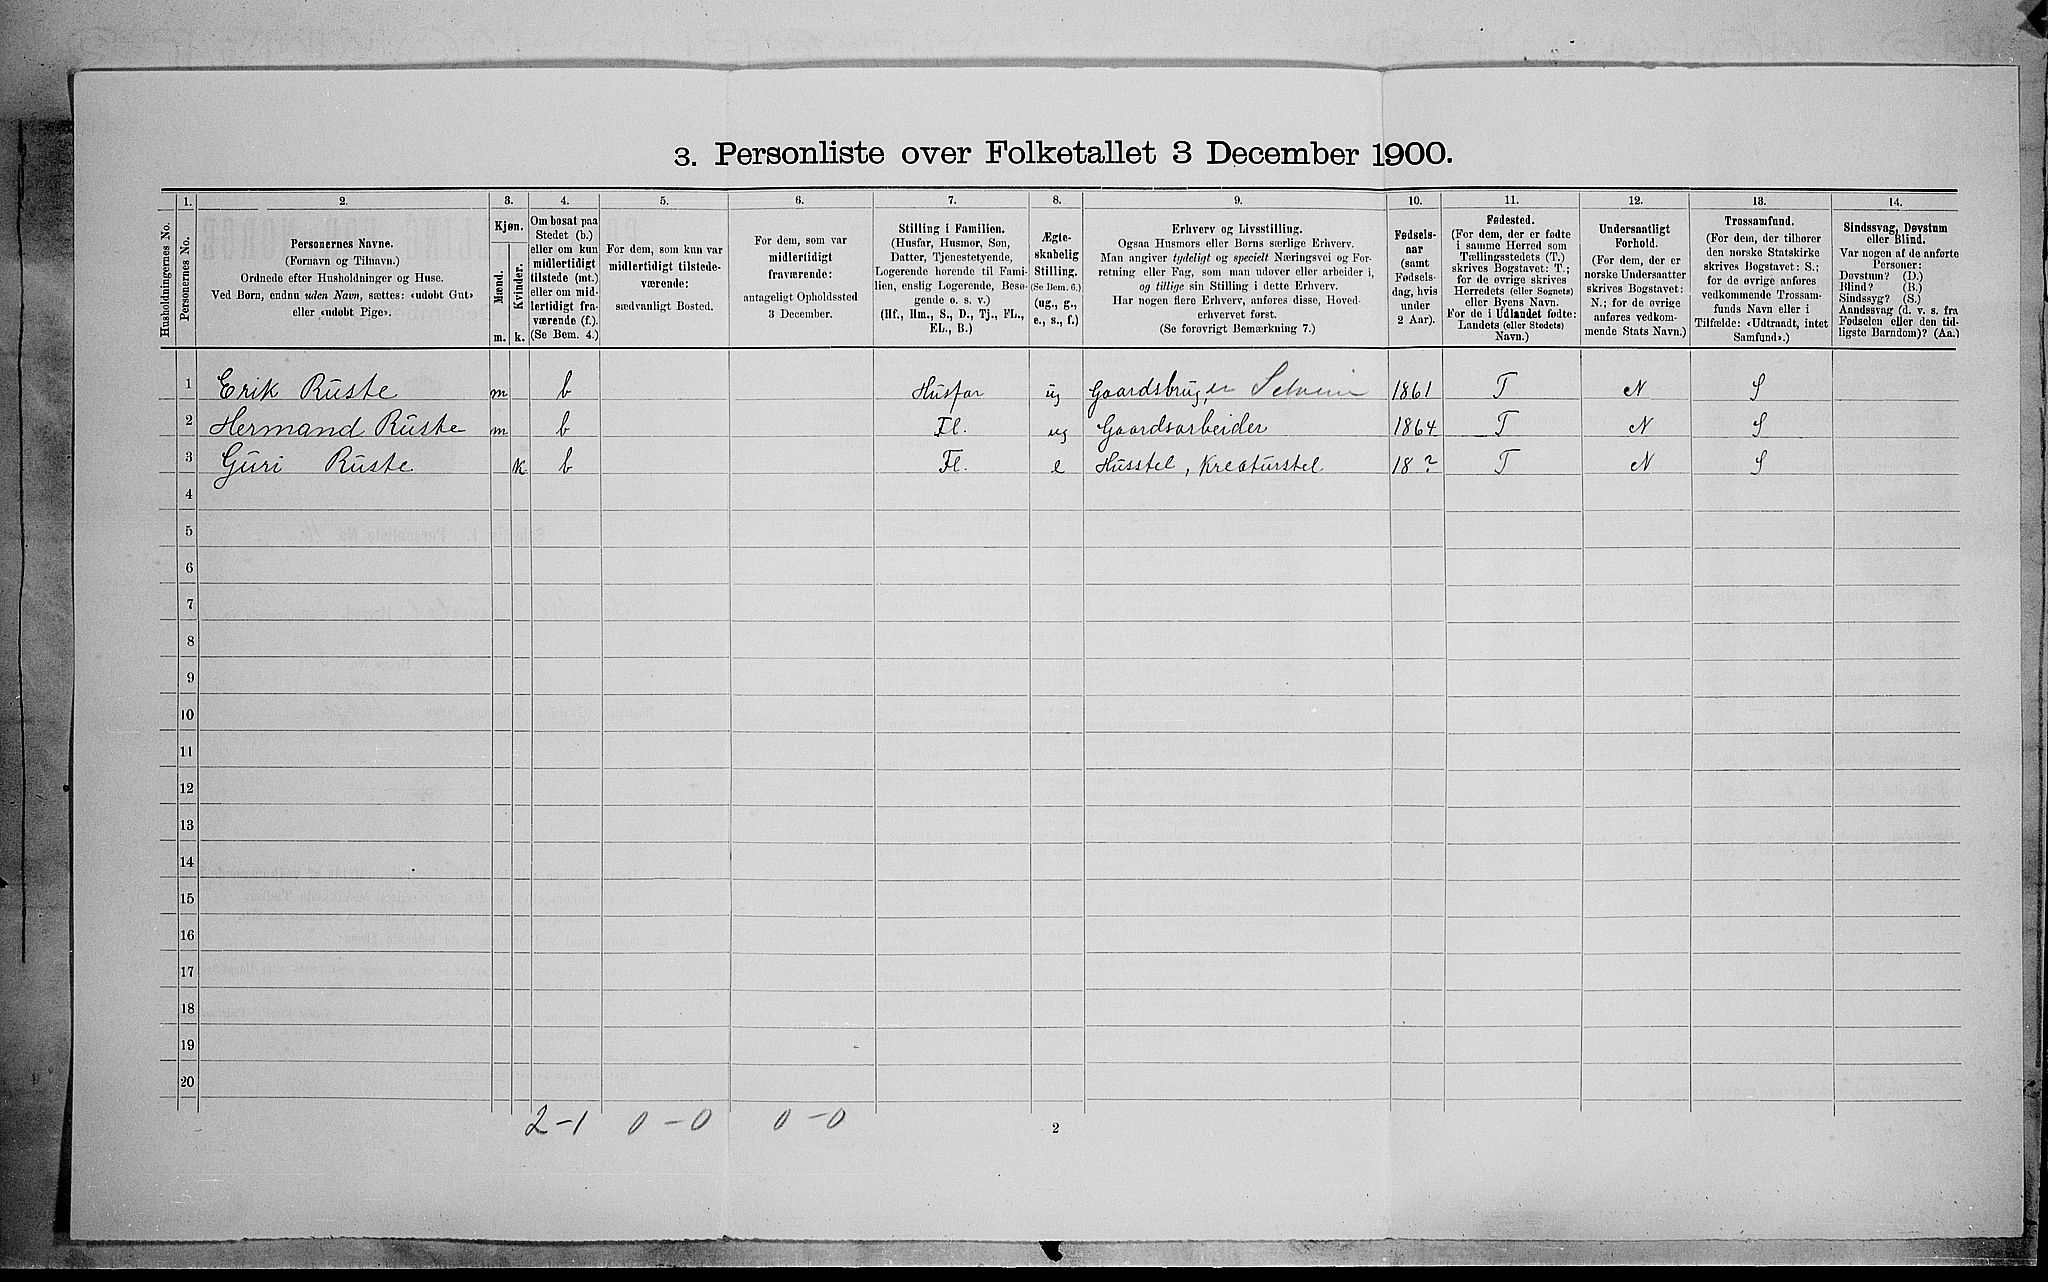 3. Personliste over Folketallet 3 December 1900.
1. 2. 3. 4. 5. 6. 7. 8. 9. 10. 11. 12. 13. 14.
Husholdningernes No.
Personernes No.
Personernes Navne.
(Fornavn og Tilnavn.)
Ordnede efter Husholdninger og Huse.
Ved Børn, endnu uden Navn, sættes: «udøbt Gut»
eller «udøbt Pige».
Kjøn.
Mænd.
Kvinder.
m. k.
Om bosat paa
Stedet (b.)
eller om kun
midlertidigt
tilstede (mt.)
eller om mid-
lertidigt fra-
værende (f.).
(Se Bem. 4.)
For dem, som kun var
midlertidigt tilstede-
værende:
sædvanligt Bosted.
For dem, som var
midlertidigt
fraværende:
antageligt Opholdssted
3 December.
Stilling i Familien.
(Husfar, Husmor, Søn,
Datter, Tjenestetyende,
Logerende hørende til Fami-
lien, enslig Logerende, Besø-
gende o. s. v.)
(Hf., Hm., S., D., Tj., FL.,
EL., B.)
Ægte-
skabelig
Stilling.
(Se Bem. 6.)
(ug., g.,
e., s., f.)
Erhverv og Livsstilling.
Ogsaa Husmors eller Børns særlige Erhverv.
Man angiver tydeligt og specielt Næringsvei og For-
retning eller Fag, som man udøver eller arbeider i,
og tillige sin Stilling i dette Erhverv.
Har nogen flere Erhverv, anføres disse, Hoved-
erhvervet først.
(Se forøvrigt Bemærkning 7.)
Fødsels-
aar
(samt
Fødsels-
dag, hvis
under
2 Aar).
Fødested.
(For dem, der er fødte
i samme Herred som
Tællingsstedets (T.)
skrives Bogstavet: T.;
for de øvrige skrives
Herredets (eller Sognets)
eller Byens Navn.
For de i Udlandet fødte:
Landets (eller Stedets)
Navn.)
Undersaatligt
Forhold.
(For dem, der er
norske Undersaatter
skrives Bogstavet:
N.; for de øvrige
anføres vedkom-
mende Stats Navn.)
Trossamfund.
(For dem, der tilhører
den norske Statskirke
skrives Bogstavet: S.;
for de øvrige anføres
vedkommende Trossam-
funds Navn eller i
Tilfælde: «Udtraadt, intet
Samfund».)
Sindssvag, Døvstum
eller Blind.
Var nogen af de anførte
Personer:
Døvstum? (D.)
Blind? (B.)
Sindssyg? (S.)
Aandssvag (d. v. s. fra
Fødselen eller den tid-
ligste Barndom)? (Aa.)
1 Erik Ruste m b Husfar ug Gaardsbruger Selveier 1861 T N S
2 Hermand Ruste m b Fl. ug Gaardsarbeider 1864 T N S
3 Guri Ruste k b Fl. e Husstel, Kreaturstel 18? T N S
4
5
6
7
8
9
10
11
12
13
14
15
16
17
18
19
20
2-1 0-0 0-0
2